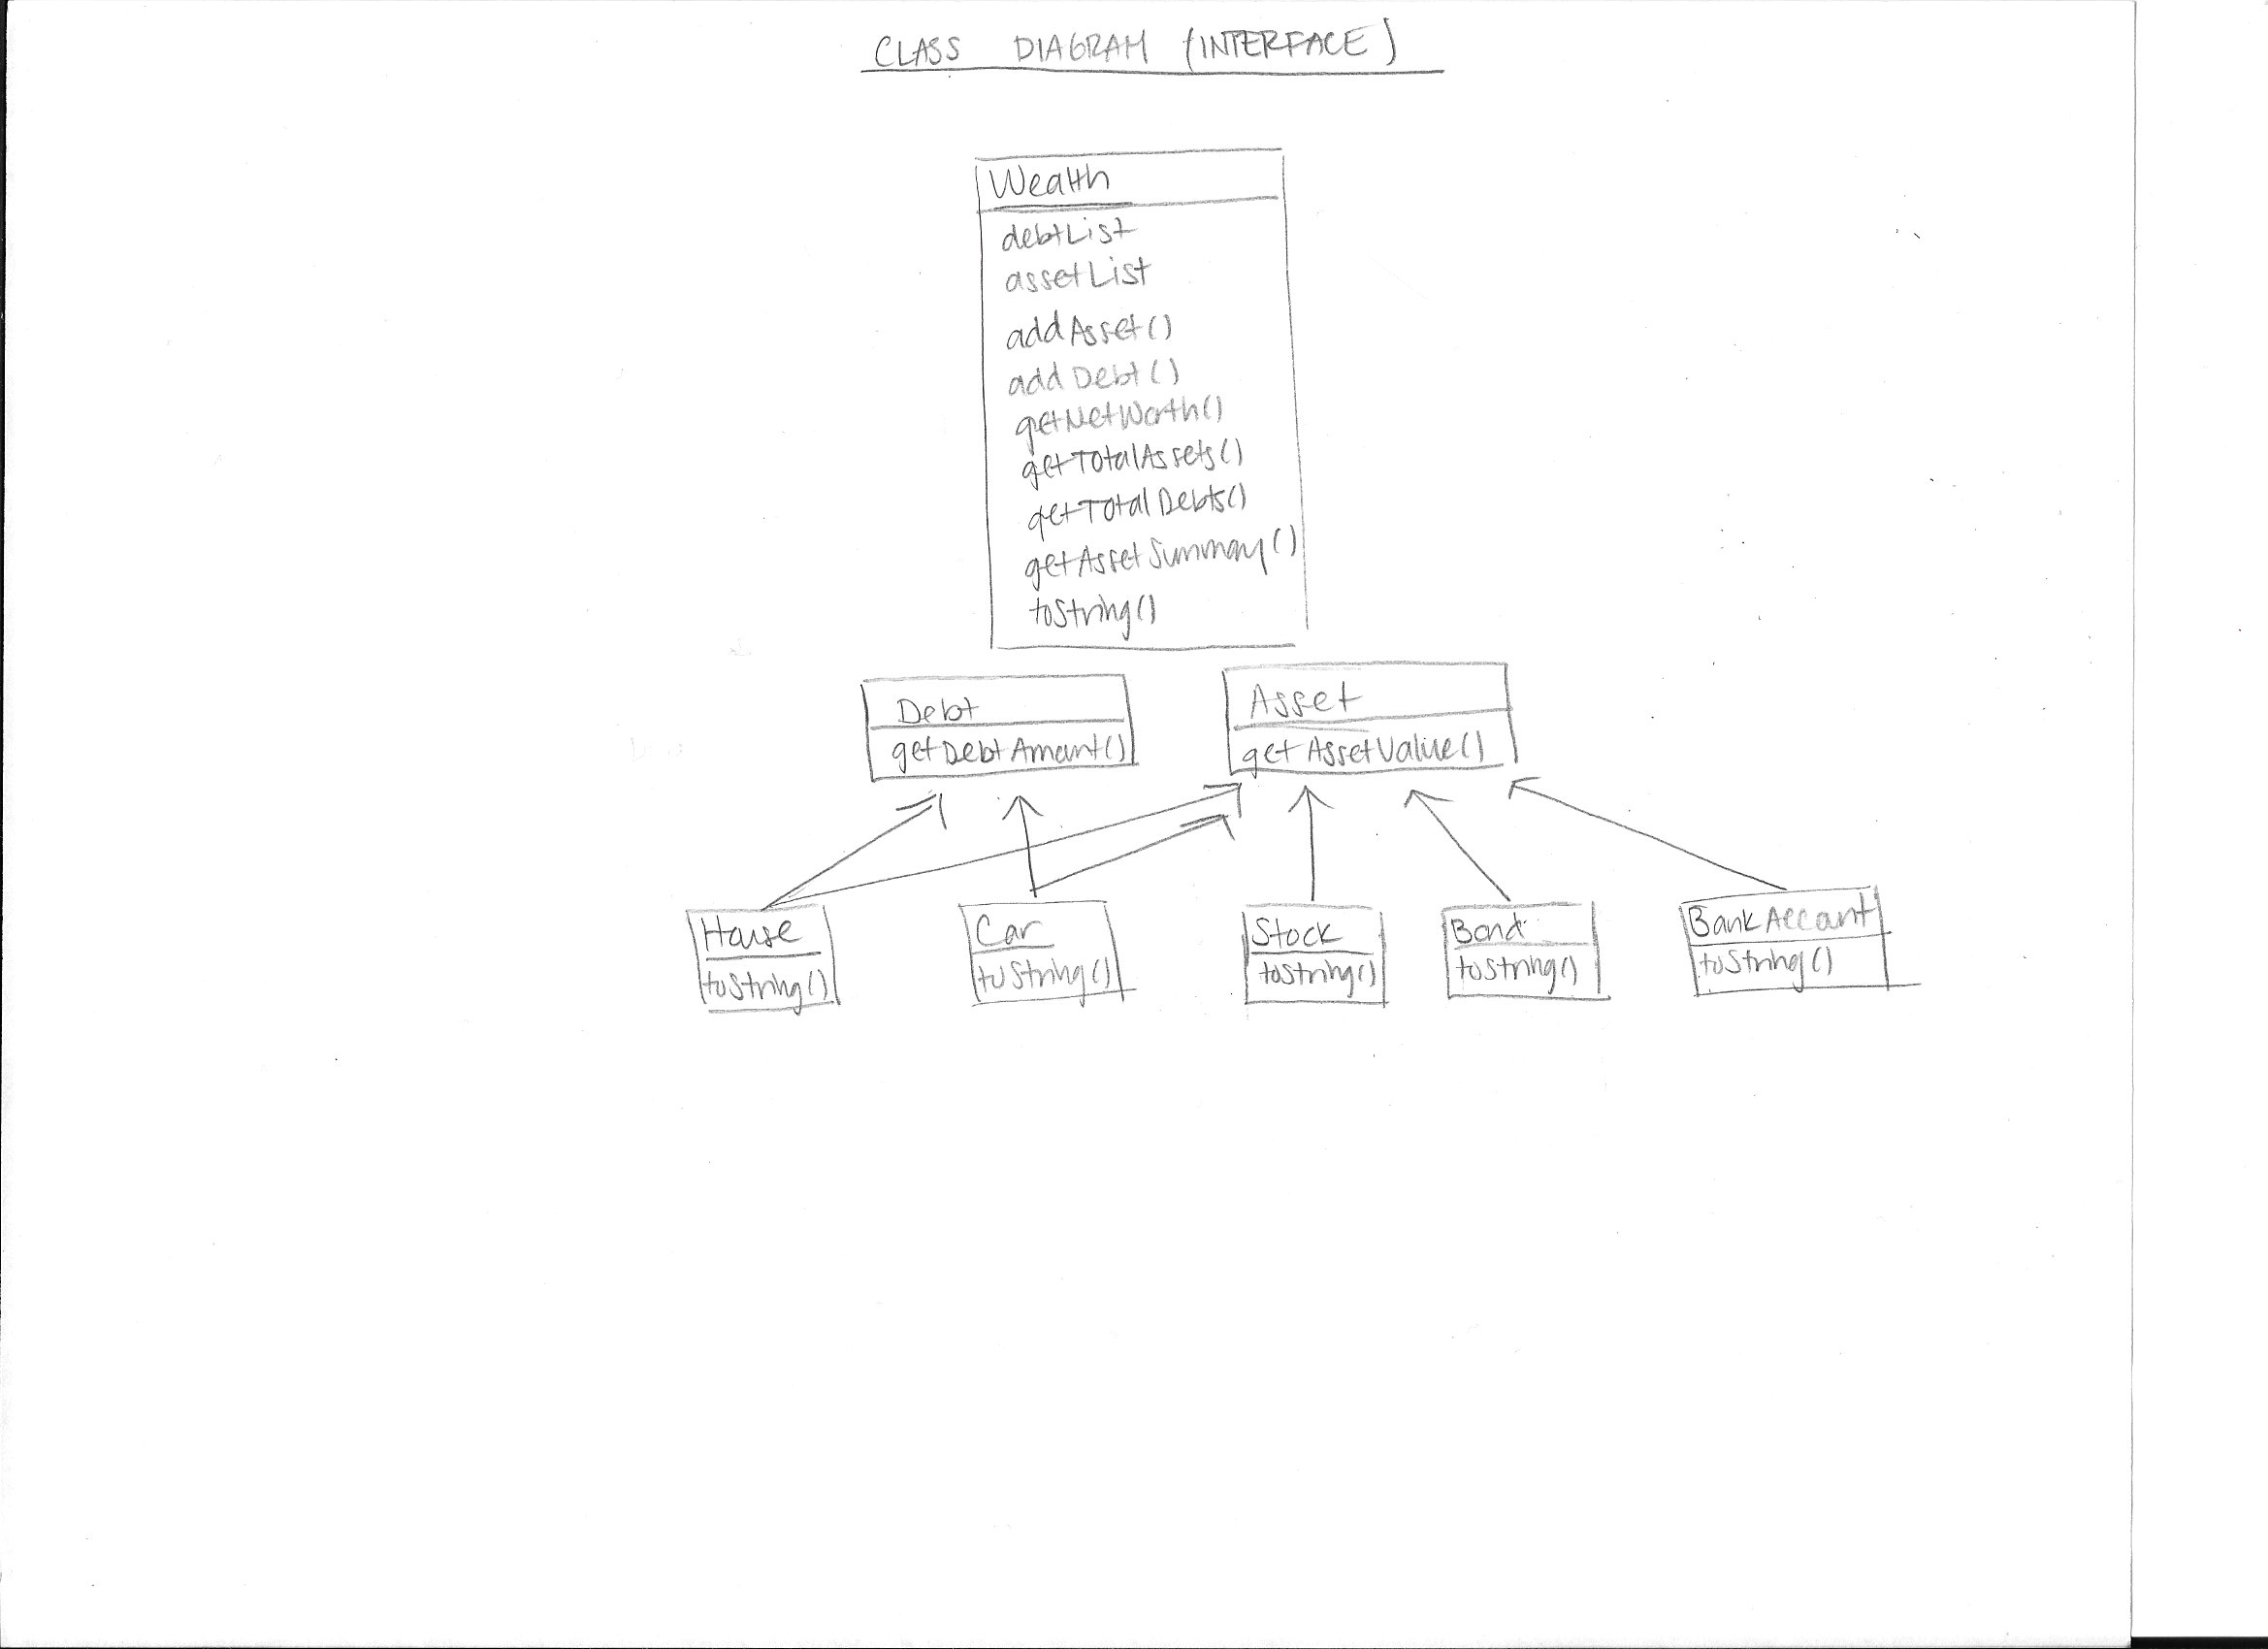 CLASS DIAGRAM (INTERFACE)
Wealth
debtList
assetList
addAsset()
addDebt()
getNetWorth()
getTotalAssets()
getTotalDebts()
getAssetSummary()
toString()
Debt
getDebtAmount()
Asset
getAssetValue()
House
toString()
Car
toString()
Stock
toString()
Bond
toString()
BankAccount
toString()